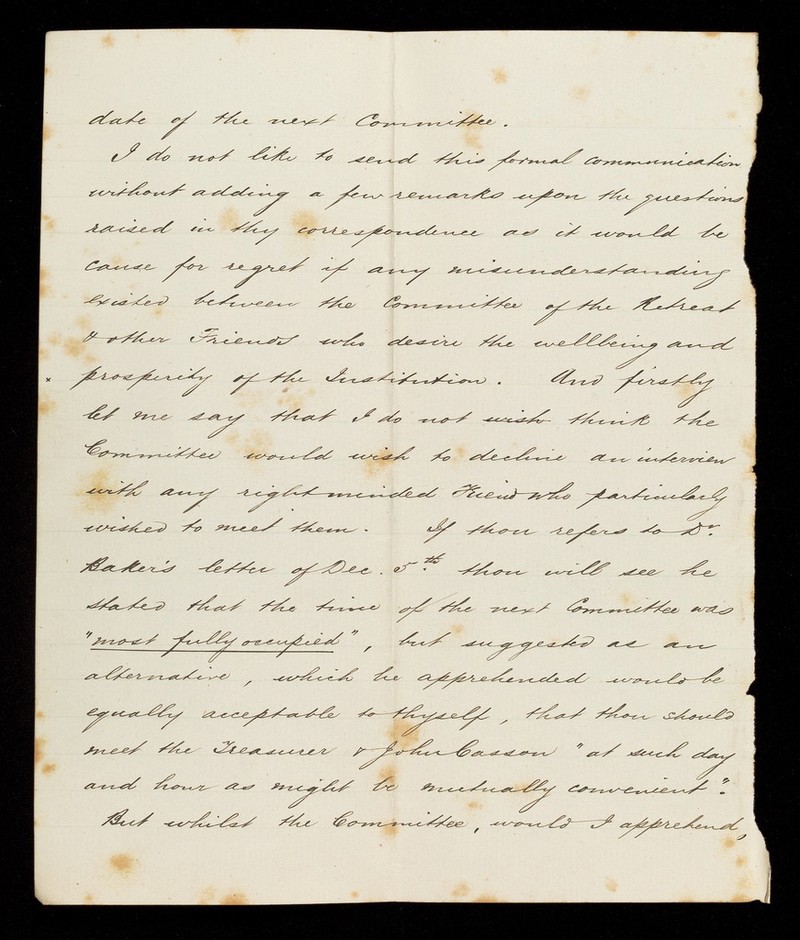 date of the next Committee.
I do not like to send this formal communication
without adding a few remarks upon the questions
raised in thy correspondence as it would be
cause for regret if any misunderstanding
existed between the Committee of the Retreat
& other Friends who desire the wellbeing and
x prosperity of the Institution. And firstly
let me say that I do not wish think the
Committee would wish to decline an interview
with any right minded Friend who particularly
wished to meet them. If thou refers to Dr.
Baker's letter of Dec. 5th thou will see he
stated that the time of the next Committee was
"most fully occupied", but suggested as an
alternative, which he apprehended would be
equally acceptable to thyself, that thou should
meet the Treasurer & John Casson "at such day
and hour as might be mutually convenient".
But whilst the Committee, would I apprehend,